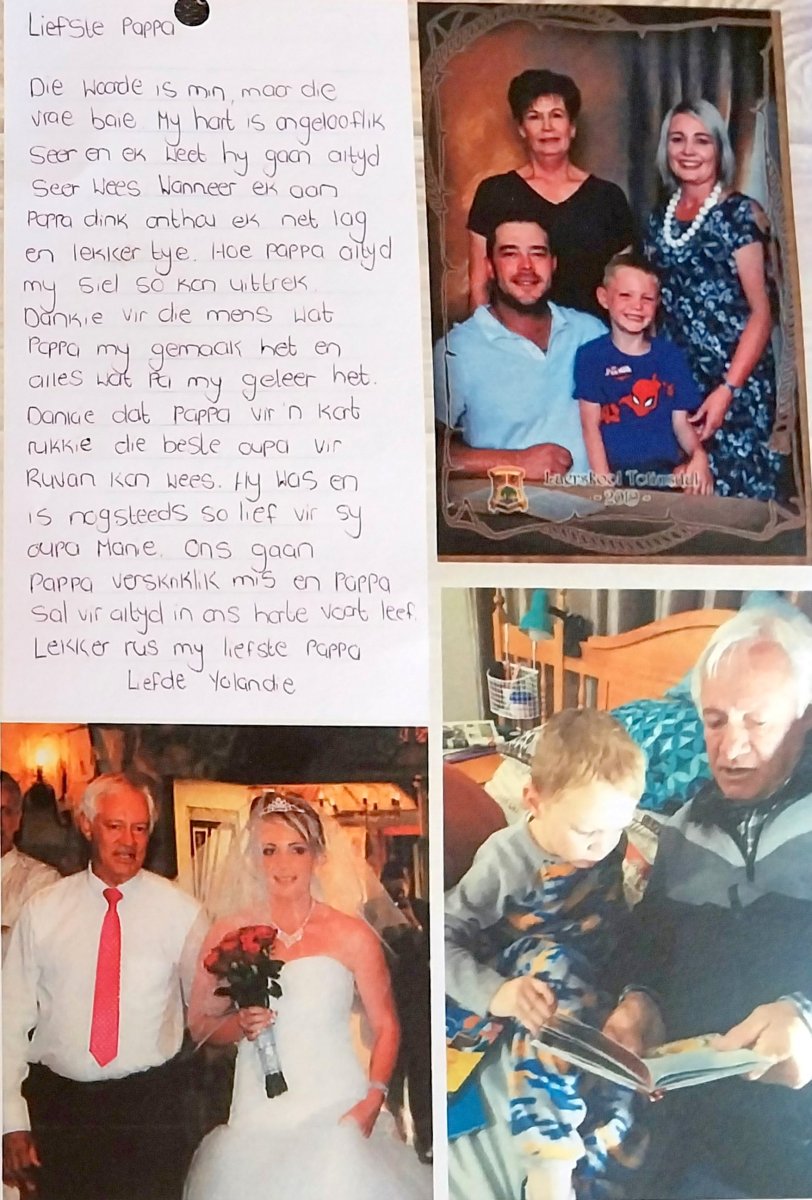 Liefste Pappa
Die woorde is min, maar die
vrae baie. My hart is ongelooflik
seer en ek weet hy gaan altyd
seer wees wanneer ek aan
Pappa dink onthou ek net lag
en lekker tye. Hoe pappa altyd
my siel so kon uittrek.
Dankie vir die mens wat
Pappa my gemaak het en
alles wat Pa my geleer het.
Dankie dat Pappa vir 'n kort
rukkie die beste oupa vir
Ruvan kon wees. Hy was en
is nogsteeds so lief vir sy
oupa Manie. Ons gaan
Pappa verskriklik mis en Pappa
sal vir altyd in ons harte voort leef.
Lekker rus my liefste Pappa
Liefde Yolandie
Laerskool
- 2019 -